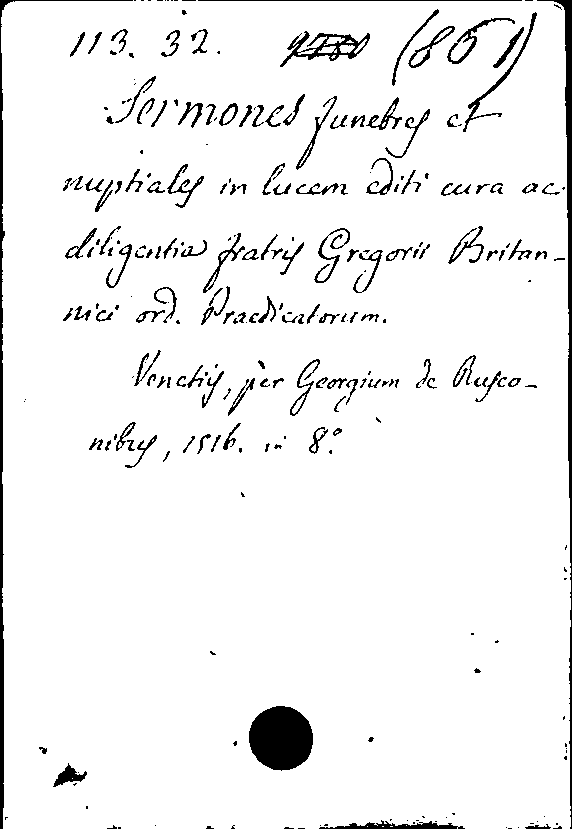 113. 32. (851)
Sermones funebres et
nuptiales in lucem editi cura ac
diligentia fratris Gregorii Britan-
nici ord. Praedicatorum.
Venetiis, per Georgium de Rusco-
nibus, 1516. in 8.º